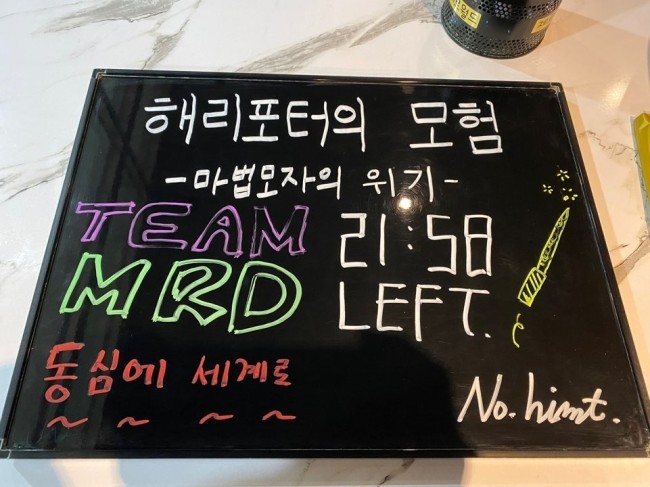 해리포터의 모험
-마법모자의 위기-
TEAM
MRD
21:58
LEFT.
동심에 세계로
~ ~ ~ ~
No. himt.